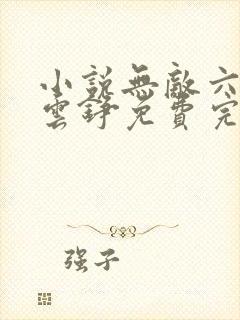 小說無敵六
雲錚免費完
强子